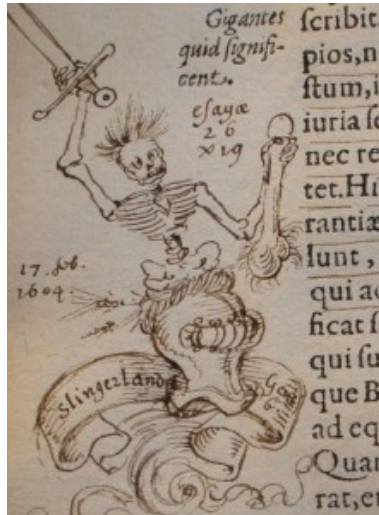 Gigantes
quid ſignifi-
cent.
eſayæ
26
19
17. feb.
1604.
Slingerland
ſcribit
pios,n
ſtum,i
iuria
nec re
tet.Hi
rantiæ
lunt ,
qui
ficat
qui
que B
ad eq
rat,